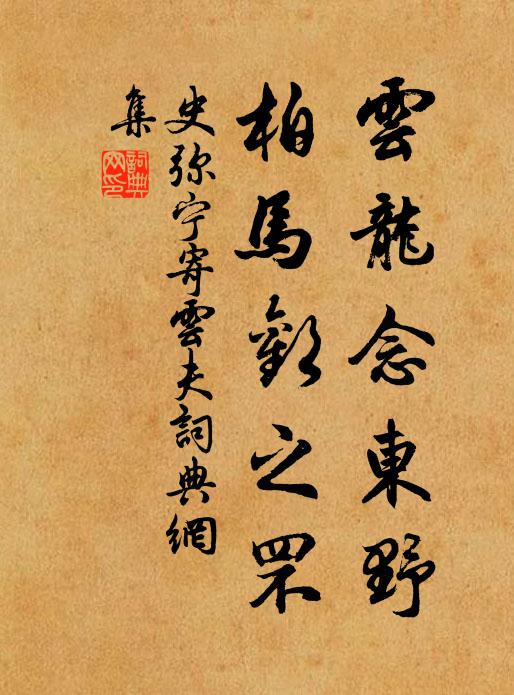 雲龍念東野
柏馬歎之罘
史弥宁寄雲夫詞典網
集
詞典
网印